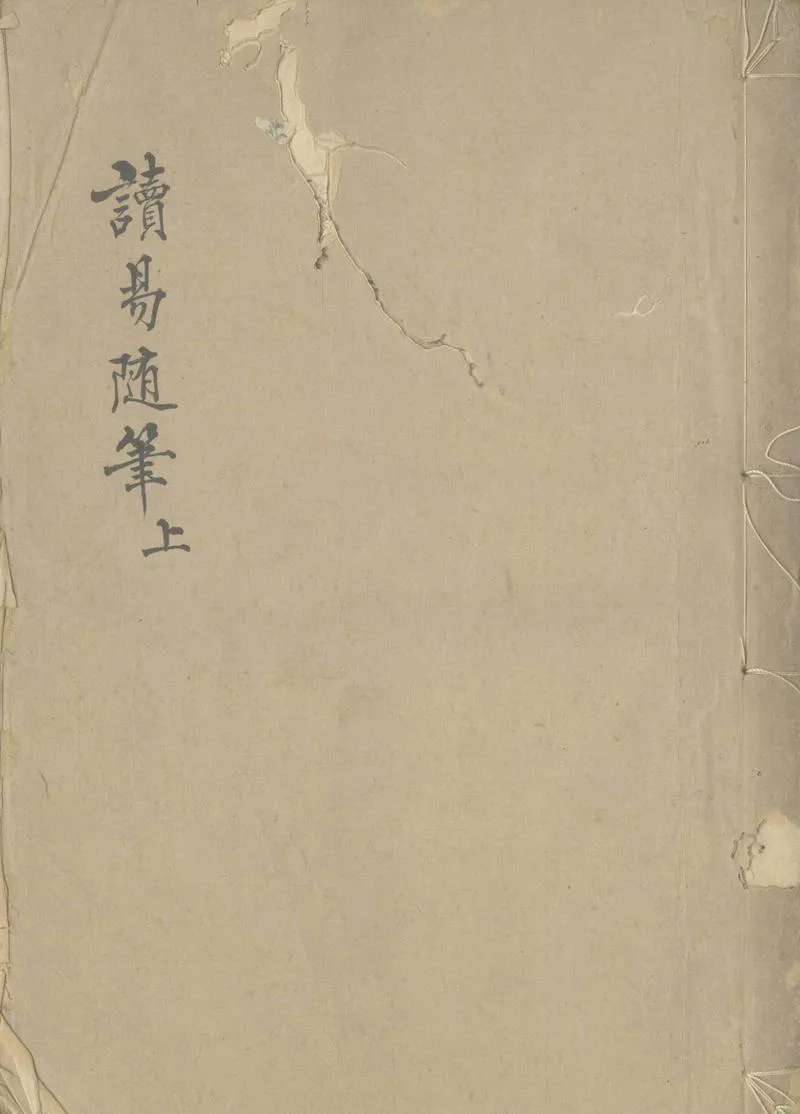 讀易随筆上